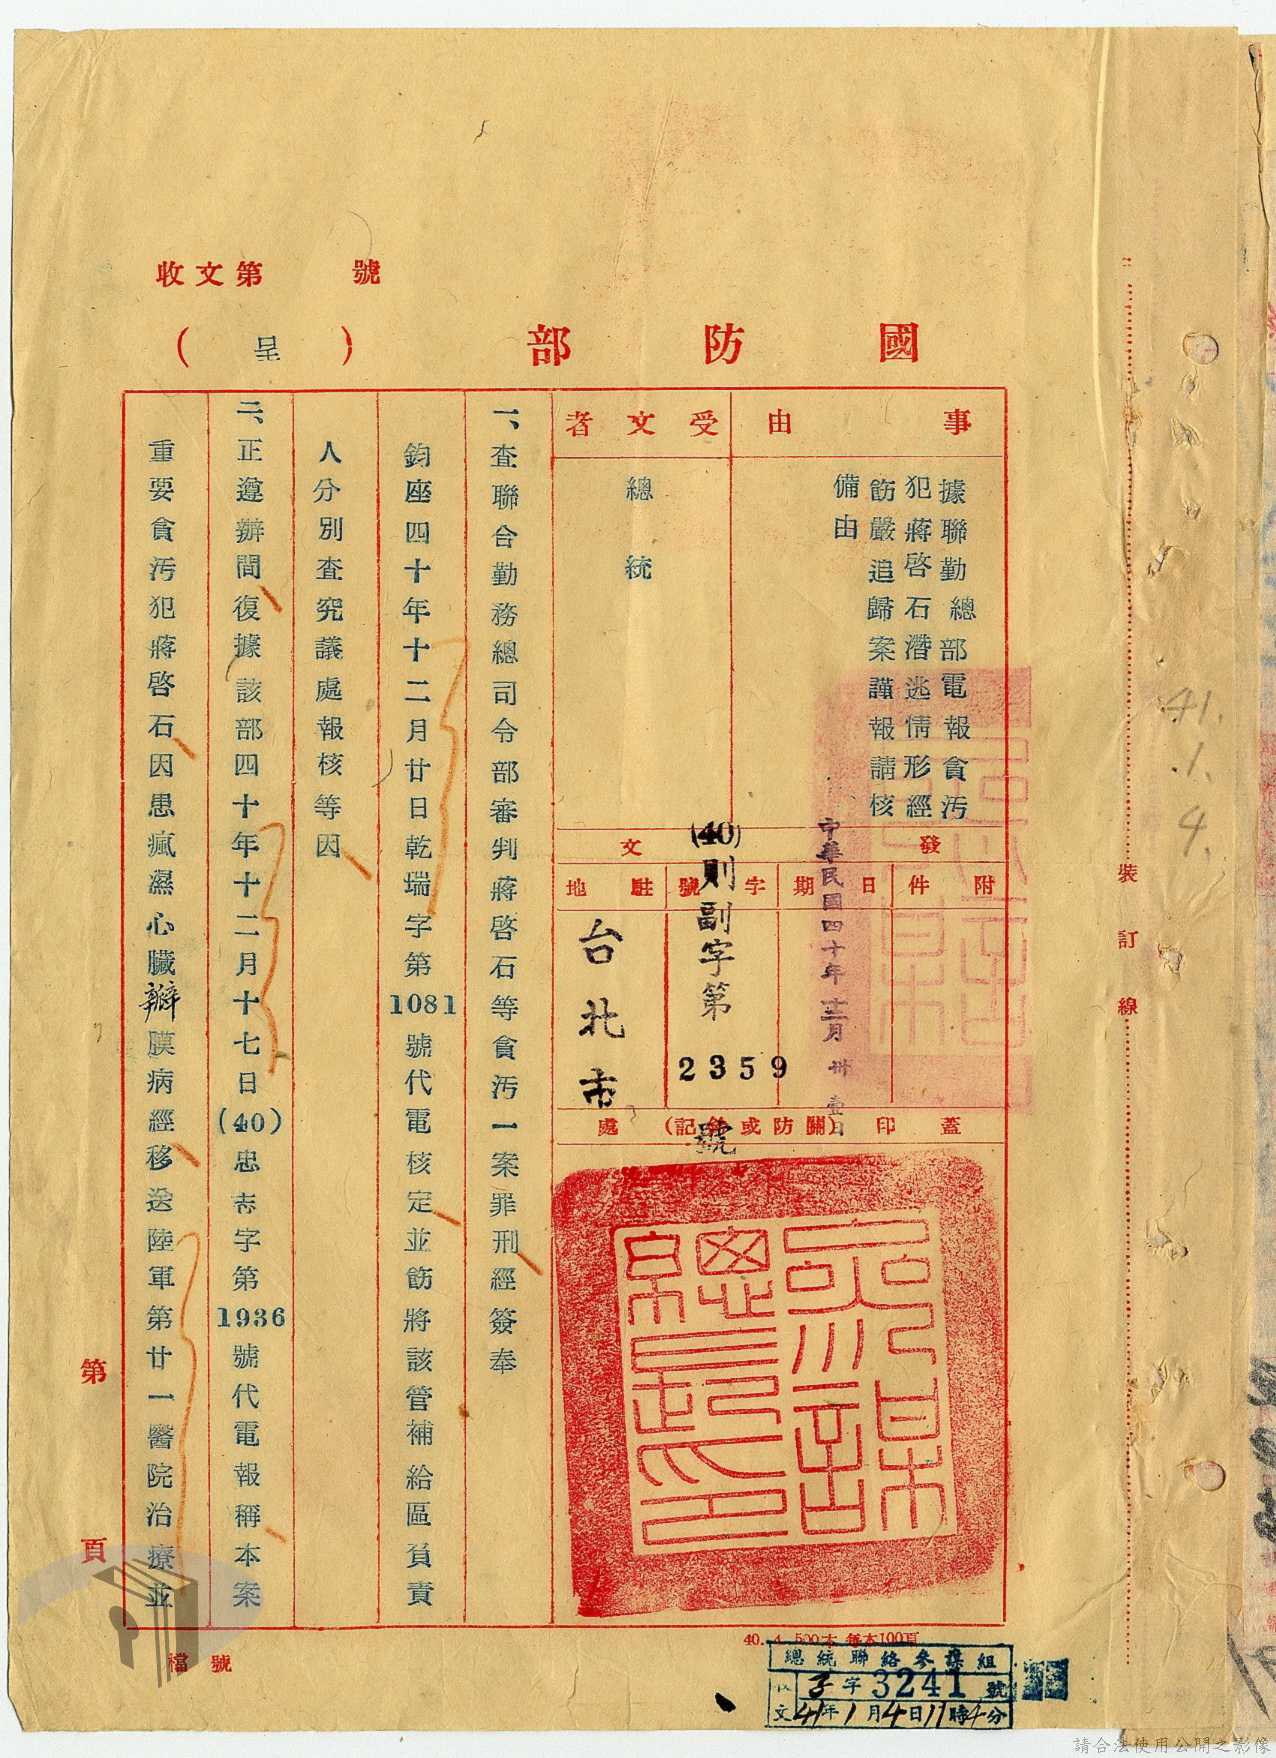 收文第　　號
國防部（呈）
事由
據聯勤總部電報貪污
犯蔣啓石潛逃情形經
飭嚴追歸案謹報請核
備由
受文者
總統
發文
附件
日期
中華民國四十年十二月卅壹日
字號
(40)則副字第2359號
駐地
台北市
蓋印（關防或鈐記）處
參謀總長之印
一、查聯合勤務總司令部審判蔣啓石等貪污一案罪刑經簽奉
鈞座四十年十二月廿日乾瑞字第1081號代電核定並飭將該管補給區負責
人分別查究議處報核等因
二、正遵辦間復據該部四十年十二月十七日(40)忠字第1936號代電報稱本案
重要貪污犯蔣啓石因患瘋濕心臟瓣膜病經移送陸軍第廿一醫院治療並
第　頁
檔號
40. 4. 500本 每本100頁
總統聯絡參謀組
收文 字3241號
41年1月4日11時4分
裝訂線
41.1.4.
請合法使用公開之影像